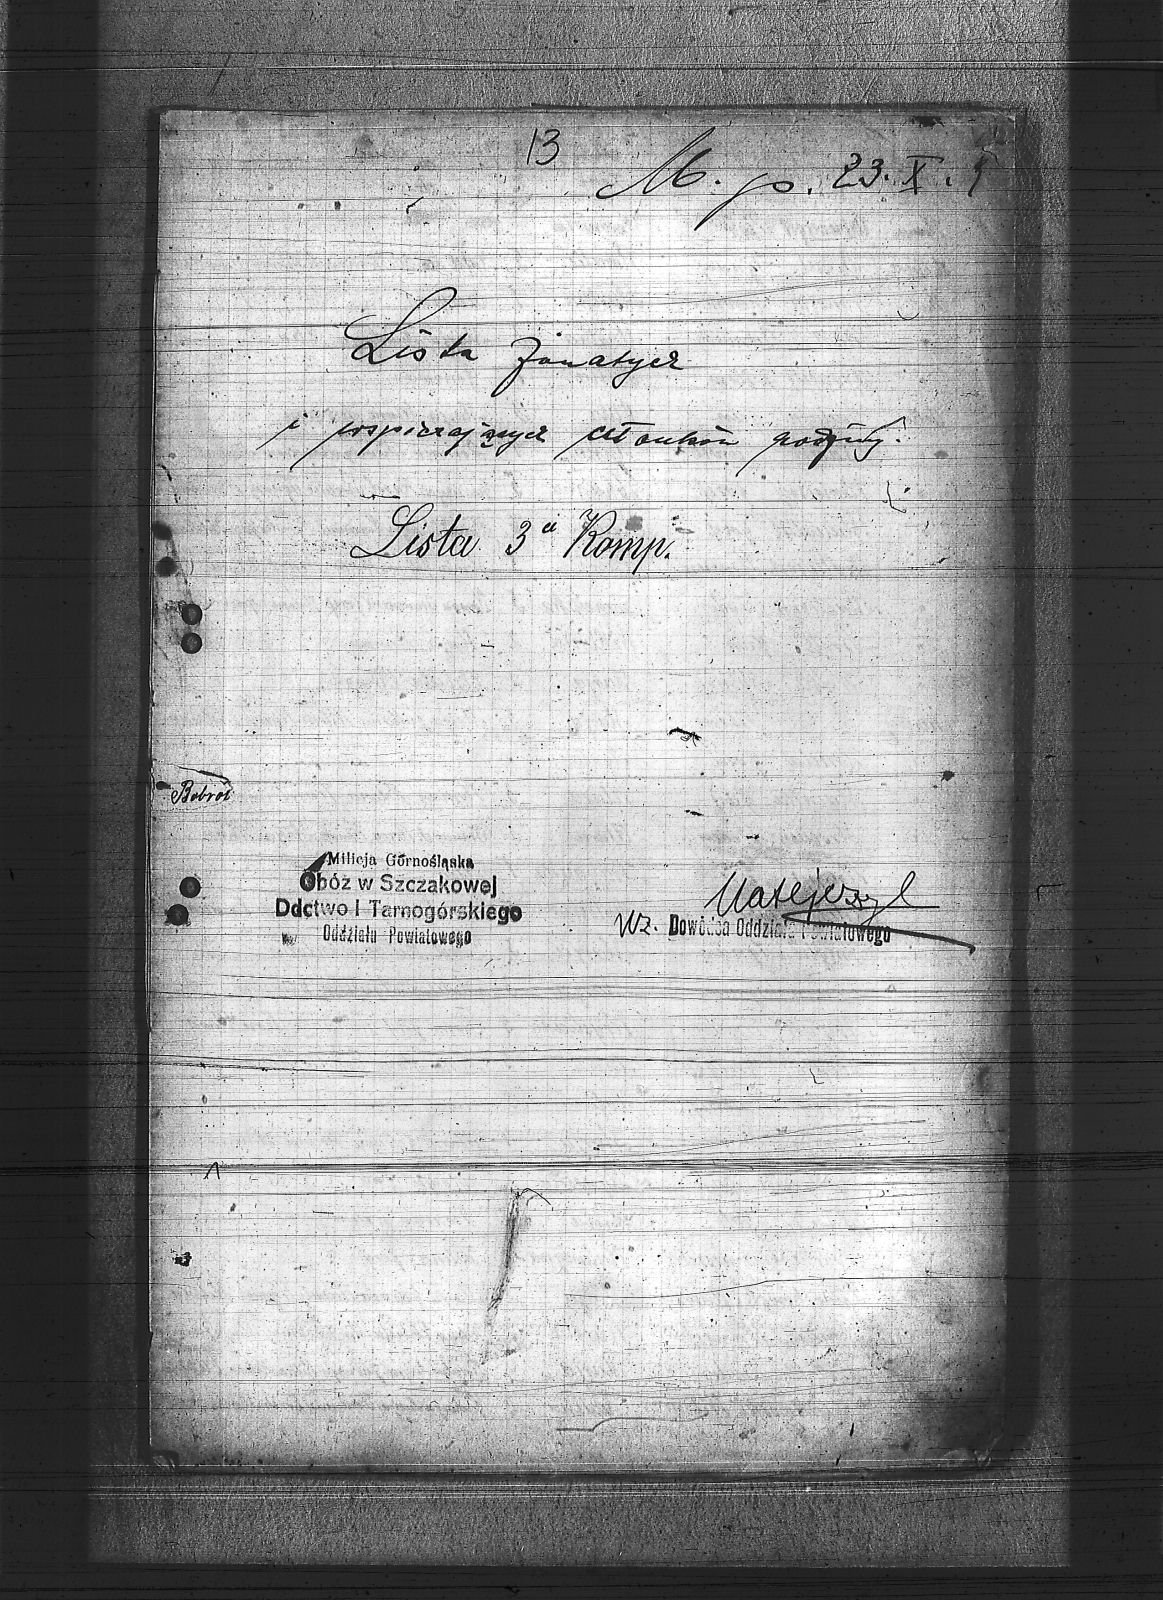 13
M. p. 23. X.
Lista żonatych
i wspierających członków rodziny.
Lista 3ci Komp.
Milicja Górnośląska
Obóz w Szczakowej
Ddctwo I Tarnogórskiego
Oddziału Powiatowego
Wz. Dowódca Oddziału Powiatowego